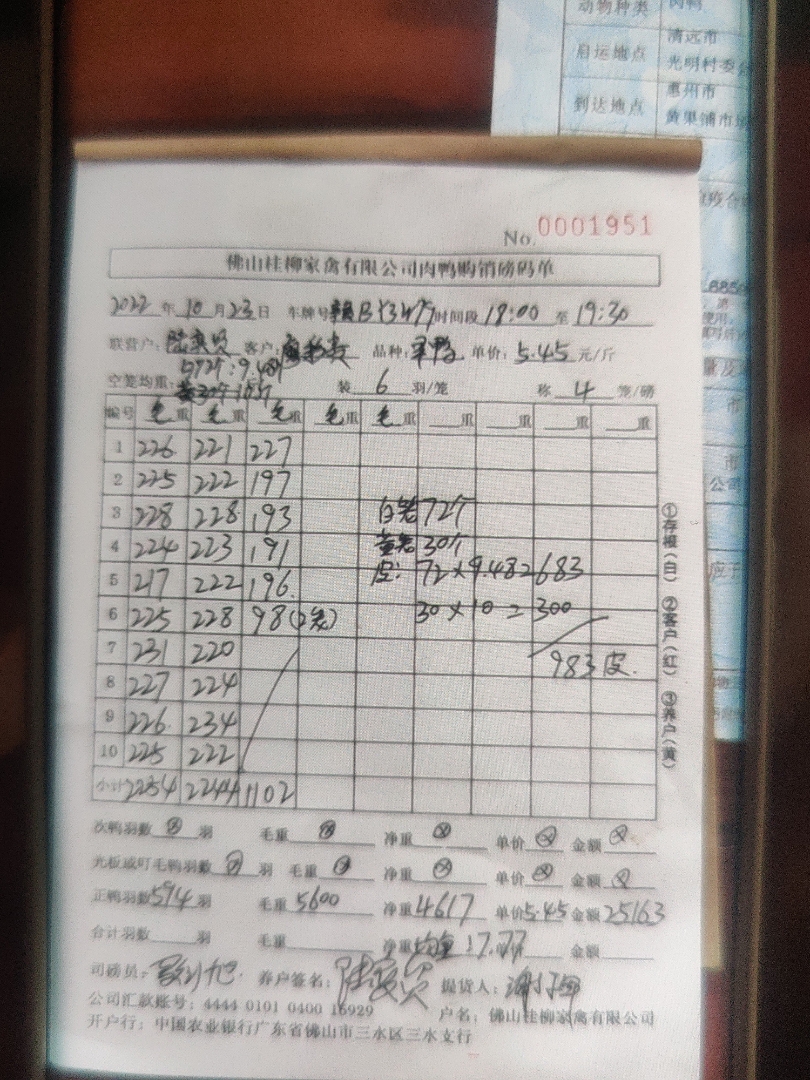 动物种类 肉鸭
启运地点 清远市
光明村委会
到达地点 惠州市
黄果铺市场
No. 0001951
佛山桂柳家禽有限公司肉鸭购销磅码单
2022 年 10 月 23 日 车牌号 时间段 18:00 至 19:30
联营户: 客户: 品种: 单价: 5.45 元/斤
空笼均重: 装 6 羽/笼 称 4 笼/磅
编号 毛重 毛重 毛重 毛重 毛重 重 重 重 重
1 226 221 227
2 225 222 197
3 228 228 193 白笼72个
4 224 223 191 黄笼30个
5 217 222 196 皮: 72×9.48=683
6 225 228 98(2笼) 30×10=300
7 231 220 983皮.
8 227 224
9 226 234
10 225 222
小计 2254 2244 1102
①存根(白) ②客户(红) ③养户(黄)
次鸭羽数 羽 毛重 净重 单价 金额
光板或叮毛鸭羽数 羽 毛重 净重 单价 金额
正鸭羽数 594 羽 毛重 5600 净重 4617 单价 5.45 金额 25163
合计羽数 羽 毛重 净重 均重:7.77 金额
司磅员: 养户签名: 提货人:
公司汇款账号: 4444 0101 0400 16929 户名: 佛山桂柳家禽有限公司
开户行: 中国农业银行广东省佛山市三水区三水支行